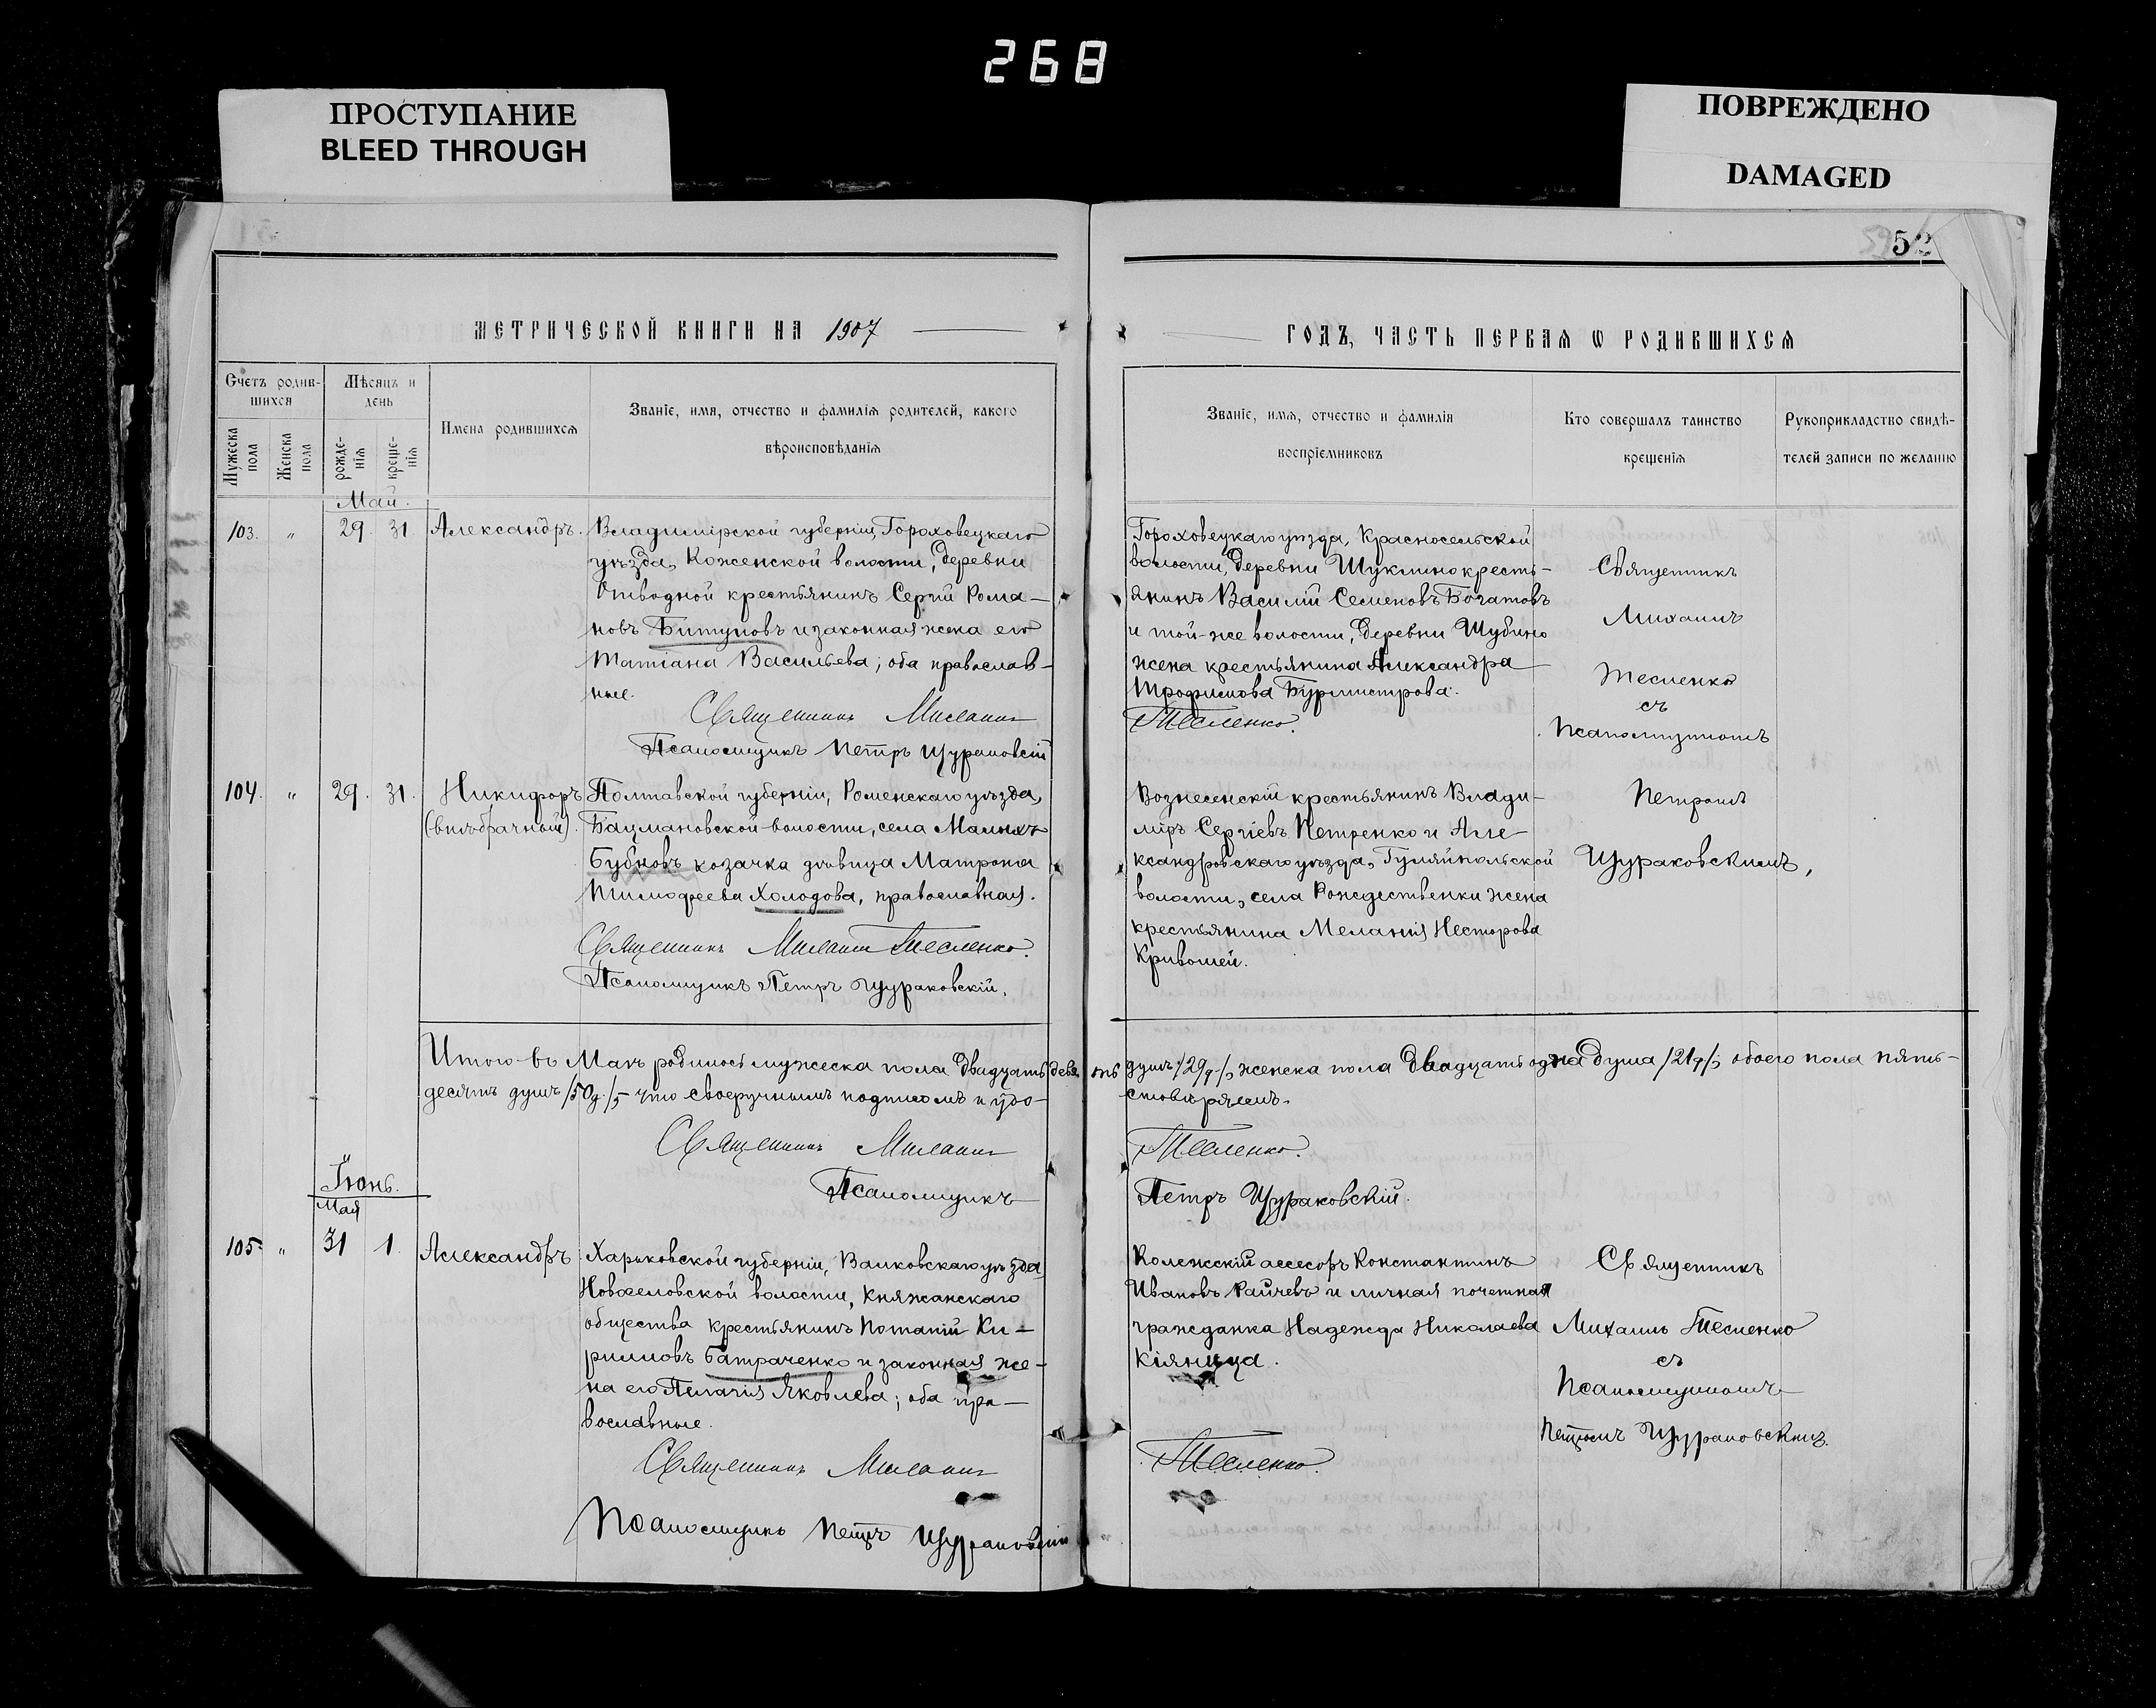 268
ПРОСТУПАНИЕ
BLEED THROUGH
ПОВРЕЖДЕНО
DAMAGED
52
МЕТРИЧЕСКОЙ КНИГИ НА 1907
Счетъ родив-
шихся
Мужеска пола
Женска пола
Мѣсяцъ и
день
рожде-
нія
креще-
нія
Имена родившихся
Званіе, имя, отчество и фамилія родителей, какого
вѣроисповѣданія
Май.
103. " 29. 31 Александръ.
Владимірской губерніи, Гороховецкаго
уѣзда, Коженской волости, деревни
Отводной крестьянинъ Сергій Рома-
новъ Битуновъ и законная жена его
Татіана Васильева; оба православ-
ные.
Священникъ Михаилъ
Псаломщикъ Петръ Щураковскій
104. " 29. 31. Никифоръ
(внѣбрачный).
Полтавской губерніи, Роменскаго уѣзда,
Бацмановской волости, села Малыхъ
Бубновъ козачка дѣвица Матрона
Тимофеева Холодова, православная.
Священникъ Михаилъ Тесленко.
Псаломщикъ Петръ Щураковскій.
Итого въ Маѣ родилось мужеска пола двадцать девять
десятъ душъ /50 д./, что своеручнымъ подписомъ и удо-
Священникъ Михаилъ
Псаломщикъ
Іюнь.
Мая
105. " 31 1. Александръ
Харьковской губерніи, Валковскаго уѣзда,
Новоселовской волости, Княжанскаго
общества крестьянинъ Потапій Ки-
рилловъ Батраченко и законная же-
на его Пелагія Яковлева; оба пра-
вославные.
Священникъ Михаилъ
Псаломщикъ Петръ Щураковскій
ГОДЪ, ЧАСТЬ ПЕРВАЯ Ѡ РОДИВШИХСЯ
Званіе, имя, отчество и фамилія
воспріемниковъ
Кто совершалъ таинство
крещенія
Рукоприкладство свидѣ-
телей записи по желанію
Гороховецкаго уѣзда, Красносельской
волости, деревни Шуклино кресть-
янинъ Василій Семеновъ Богатовъ
и той-же волости, деревни Шубино
жена крестьянина Александра
Трофимова Бурмистрова.
Тесленко.
Священникъ
Михаилъ
Тесленко
съ
Псаломщикомъ
Петромъ
Щураковскимъ,
Вознесенскій крестьянинъ Влади-
міръ Сергіевъ Петренко и Але-
ксандровскаго уѣзда, Гуляйпольской
волости, села Рождественки жена
крестьянина Меланія Несторова
Кривошей.
душъ /29 д./, женска пола двадцать одна душа /21 д./, обоего пола пять-
стовѣряемъ.
Тесленко.
Петръ Щураковскій.
Колежскій ассесоръ Константинъ
Ивановъ Райчевъ и личная почетная
гражданка Надежда Николаева
Кіяница.
Тесленко.
Священникъ
Михаилъ Тесленко
съ
Псаломщикомъ
Петромъ Щураковскимъ.